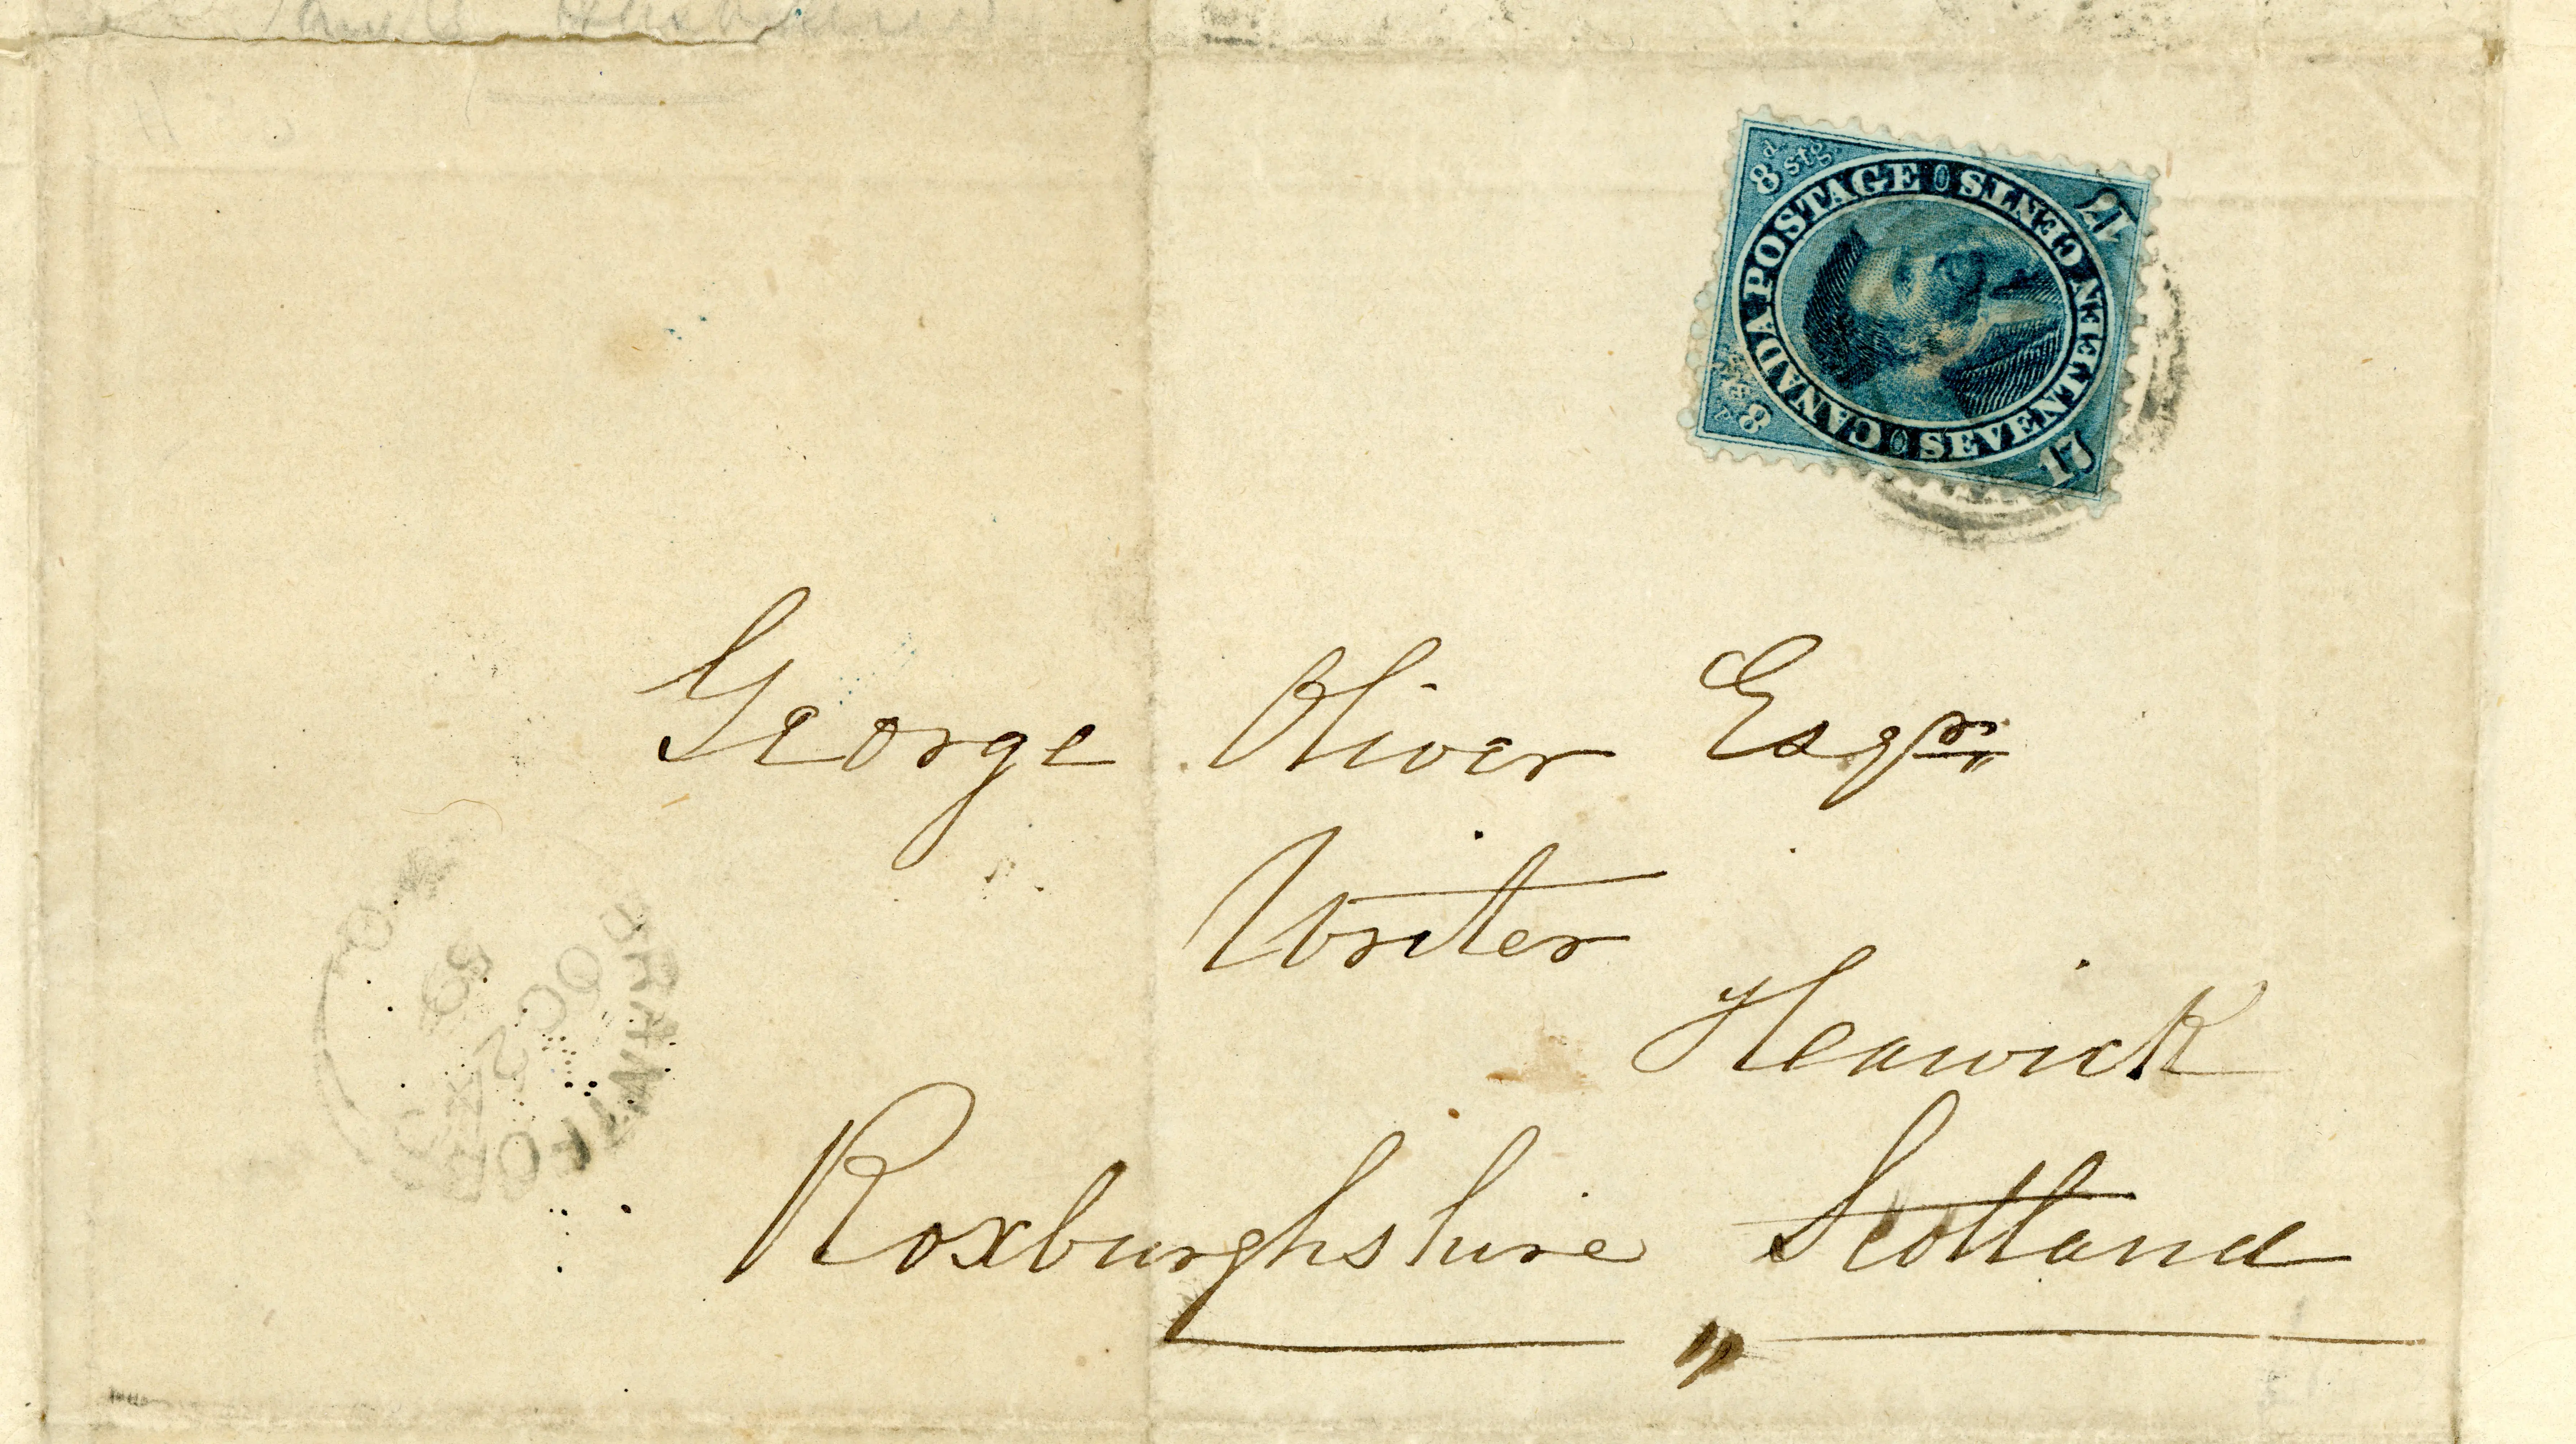 8d stg.
CANADA POSTAGE
SEVENTEEN CENTS
17
17
8d stg.
George Oliver Esqr.
Writer
Heawick
Roxburghshire Scotland
BRANTFORD
OC 2